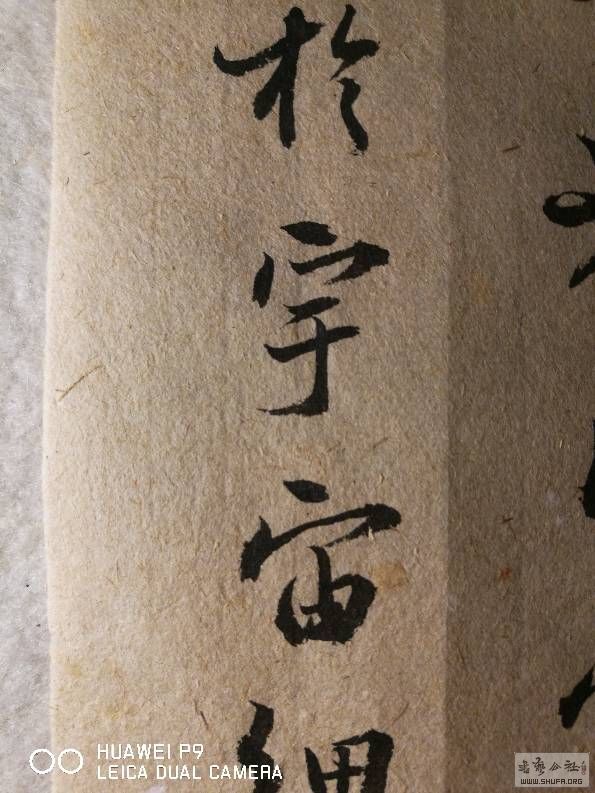 於宇宙細
HUAWEI P9
LEICA DUAL CAMERA
书艺公社
WWW.SHUFA.ORG